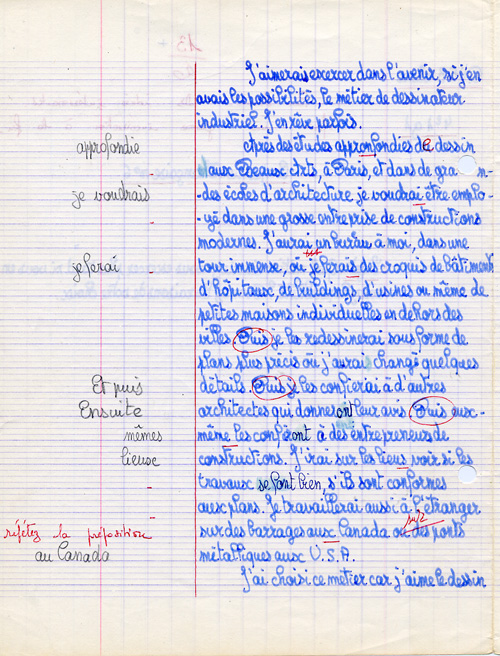 13
J'aimerais exercer dans l'avenir, si j'en
avais les possibilités, le métier de dessinateur
industriel. J'en rêve parfois.
approfondie
Après des études appronfondies de dessin
aux Beaux Arts, à Paris, et dans de gran-
je voudrais
-des écoles d'architecture je voudrai être emplo-
-yé dans une grosse entreprise de constructions
modernes. J'aurai un bureau à moi, dans une
je ferai
tour immense, où je ferais des croquis de bâtiments
d'hôpitaux, de buildings, d'usines ou même de
petites maisons individuelles en dehors des
villes. Puis je les redessinerai sous forme de
plans plus précis où j'aurai changé quelques
Et puis
détails. Puis je les confierai à d'autres
Ensuite
architectes qui donneront leur avis. Puis eux-
mêmes
même les confieront à des entrepreneurs de
lieux
constructions. J'irai sur les lieus voir si les
travaux se font bien, s'ils sont conformes
aux plans. Je travaillerai aussi à l'étranger
répétez la préposition
sur
sur des barrages aux Canada ou des ponts
au Canada
métalliques aux U.S.A.
J'ai choisi ce métier car j'aime le dessin